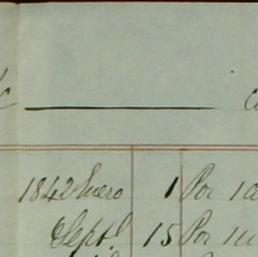 1842 Enero 1 Por 1
Sept. 15 Por